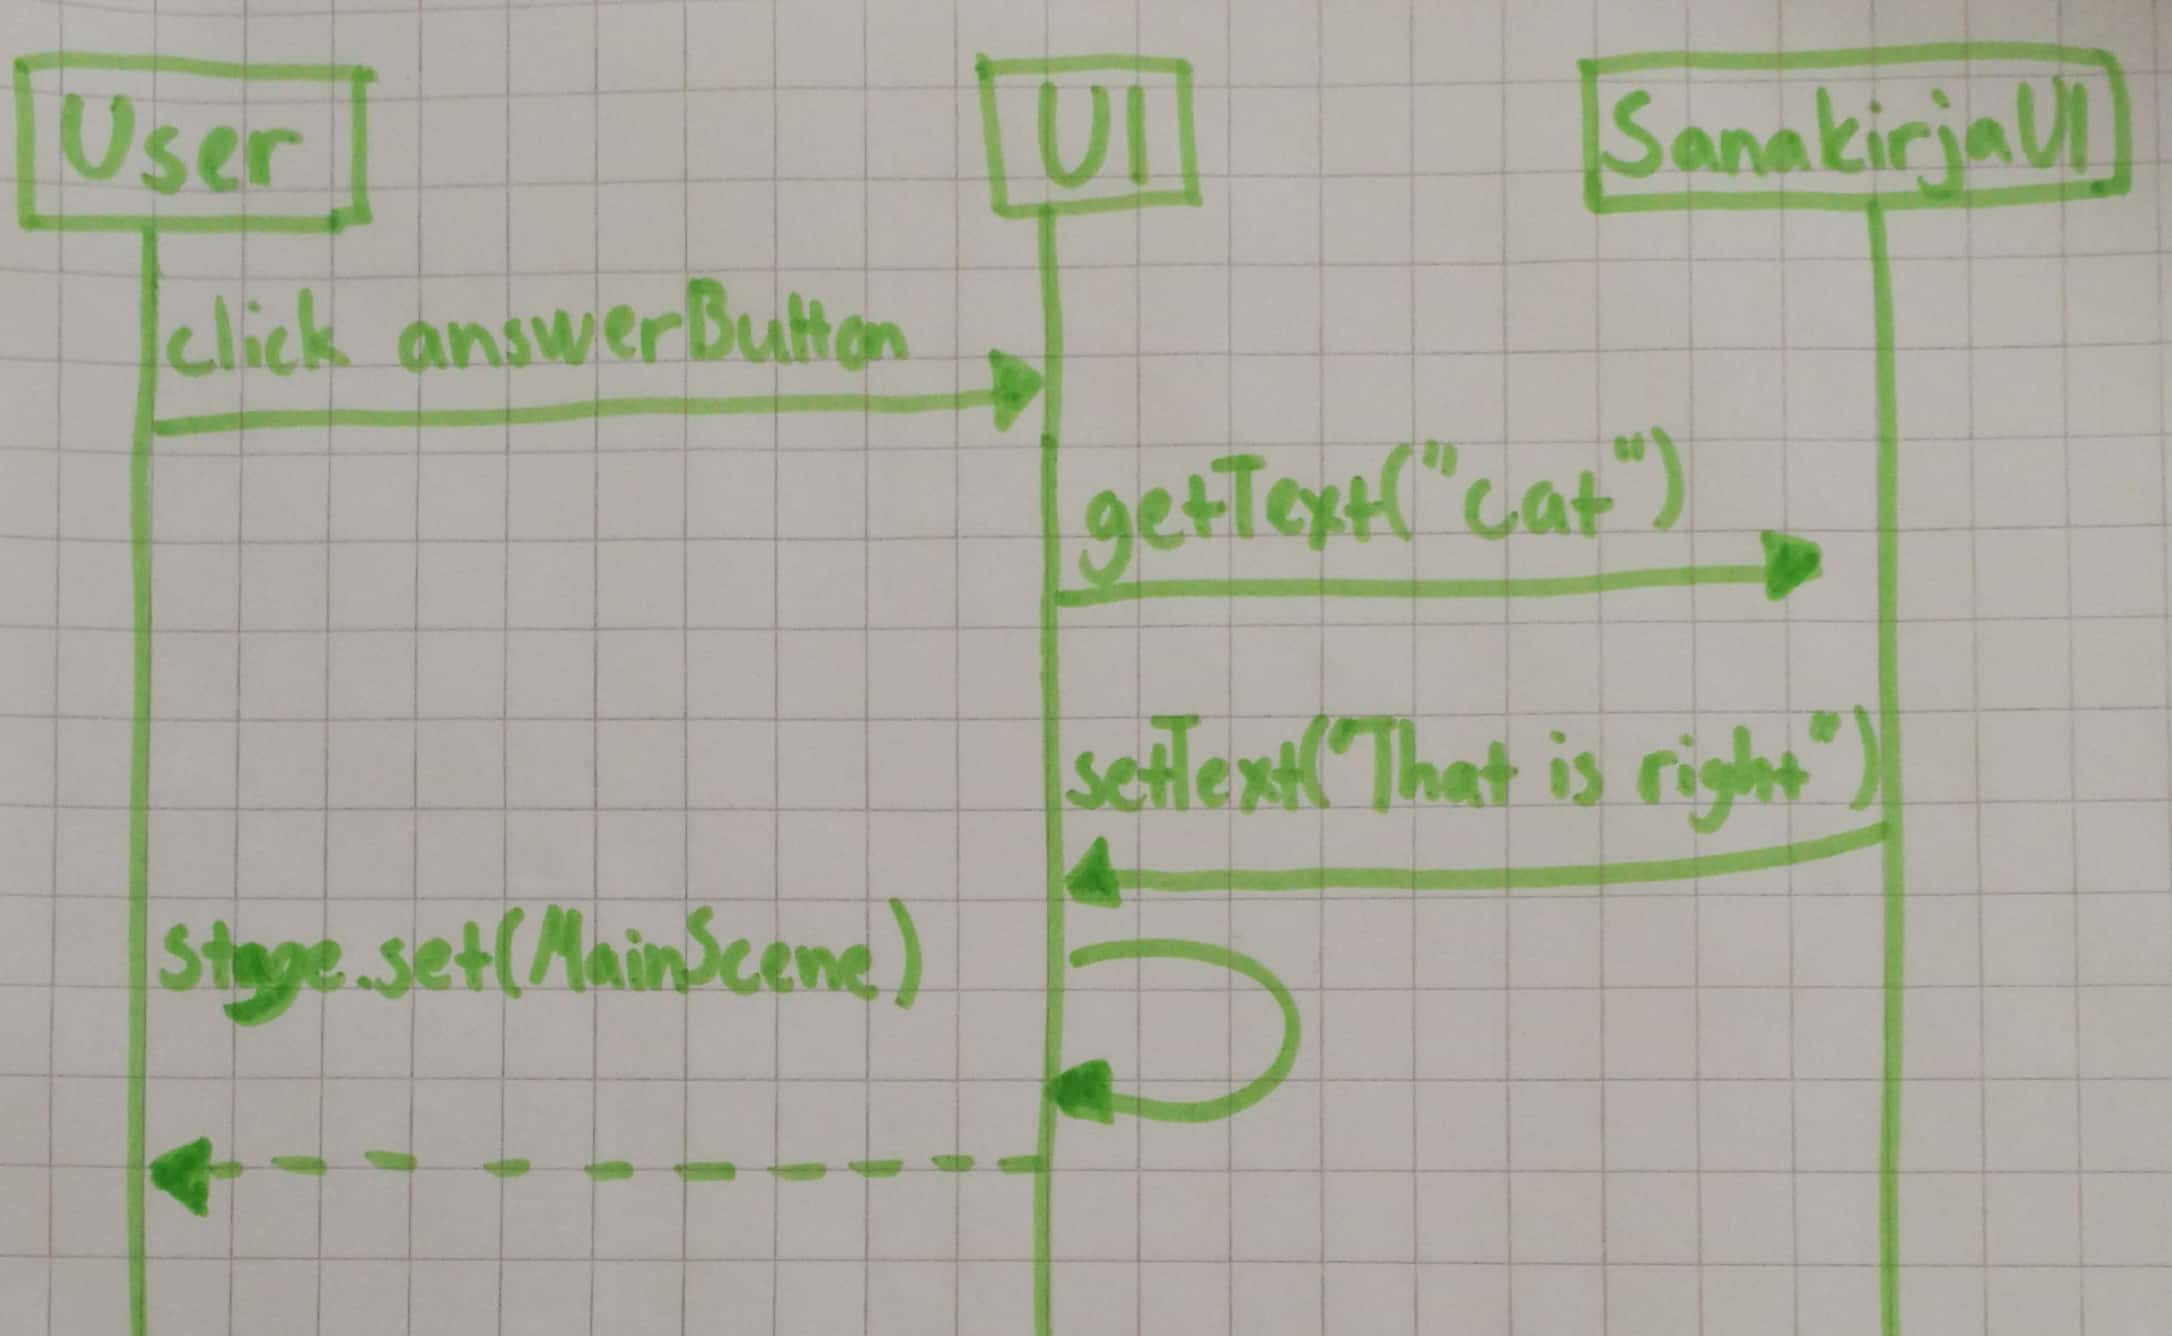 User
UI
SanakirjaUI
click answerButton
getText("cat")
setText("That is right")
stage.set(MainScene)